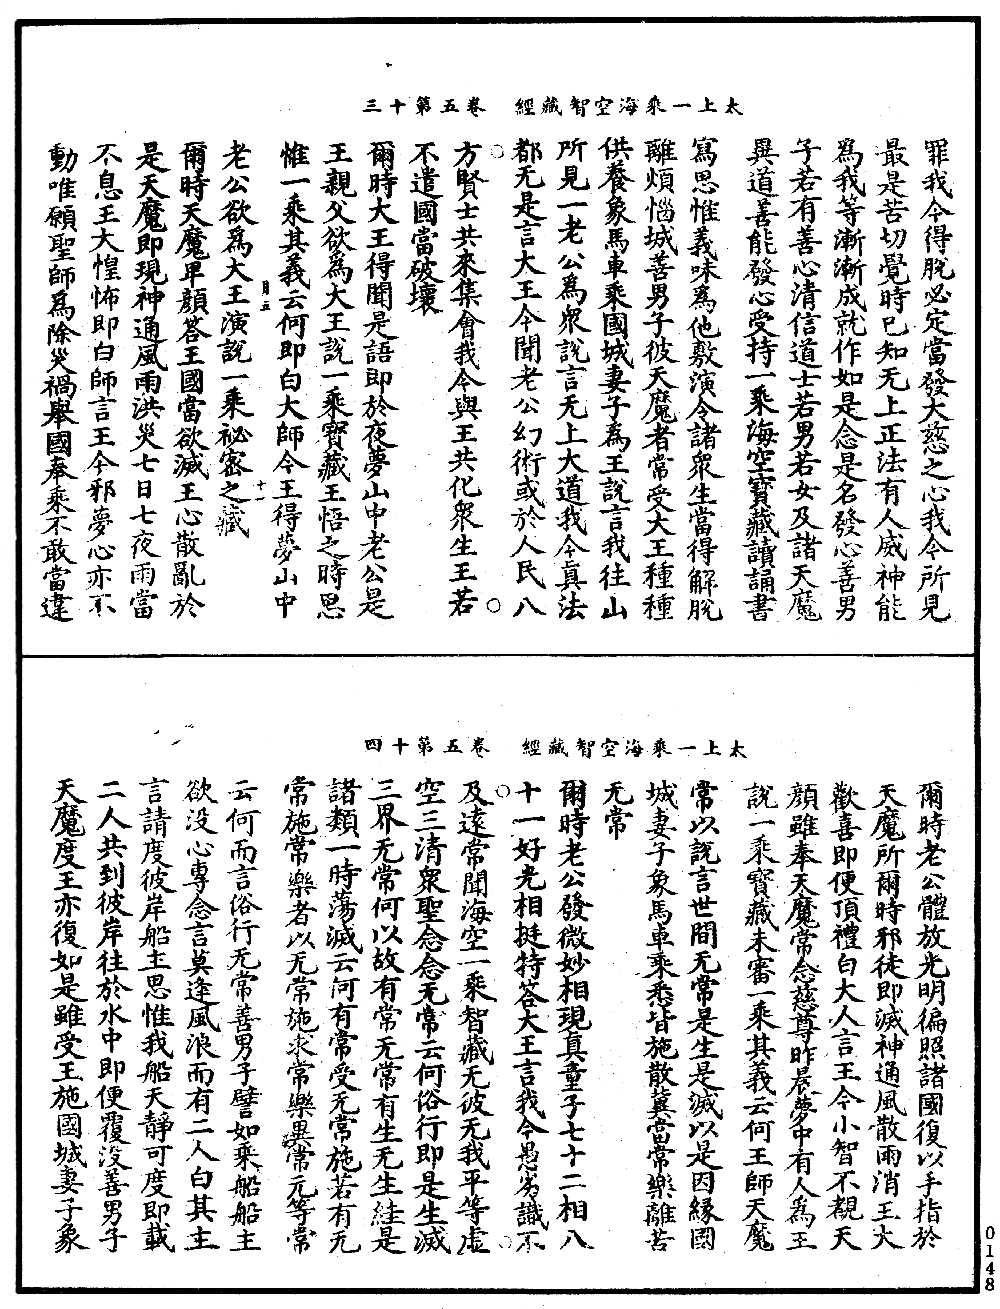 太上一乘海空智藏經　卷五第十三
罪我今得脫必定當發大慈之心我今所見
最是苦切覺時已知无上正法有人威神能
爲我等漸漸成就作如是念是名發心善男
子若有善心清信道士若男若女及諸天魔
異道善能發心受持一乘海空寶藏讀誦書
寫思惟義味爲他敷演令諸衆生當得解脫
離煩惱城善男子彼天魔者常受大王種種
供養象馬車乘國城妻子爲王說言我往山
所見一老公爲衆說言无上大道我今真法
都无是言大王今聞老公幻術或於人民八
方賢士共來集會我今與王共化衆生王若
不遣國當破壞
爾時大王得聞是語即於夜夢山中老公是
王親父欲爲大王說一乘寶藏王悟之時思
惟一乘其義云何即白大師今王得夢山中
老公欲爲大王演說一乘祕密之藏
爾時天魔卑顏答王國當欲滅王心散亂於
是天魔即現神通風雨洪災七日七夜雨當
不息王大惶怖即白師言王今邪夢心亦不
動唯願聖師爲除災禍舉國奉乘不敢當違
太上一乘海空智藏經　卷五第十四
爾時老公體放光明徧照諸國復以手指於
天魔所爾時邪徒即滅神通風散雨消王大
歡喜即便頂禮白大人言王今小智不覩天
顏雖奉天魔常念慈尊昨晨夢中有人爲王
說一乘寶藏未審一乘其義云何王師天魔
常以說言世間无常是生是滅以是因緣國
城妻子象馬車乘悉皆施散冀當常樂離苦
无常
爾時老公發微妙相現真童子七十二相八
十一好光相挺特答大王言我今愚劣識不
及遠常聞海空一乘智藏无彼无我平等虛
空三清衆聖念念无常云何俗行即是生滅
三界无常何以故有常无常有生无生絓是
諸類一時蕩滅云何有常受无常施若有无
常施常樂者以无常施求常樂異常元等常
云何而言俗行无常善男子譬如乘船船主
欲没心專念言莫逢風浪而有二人白其主
言請度彼岸船主思惟我船天靜可度即載
二人共到彼岸往於水中即便覆没善男子
天魔度王亦復如是雖受王施國城妻子象
0148